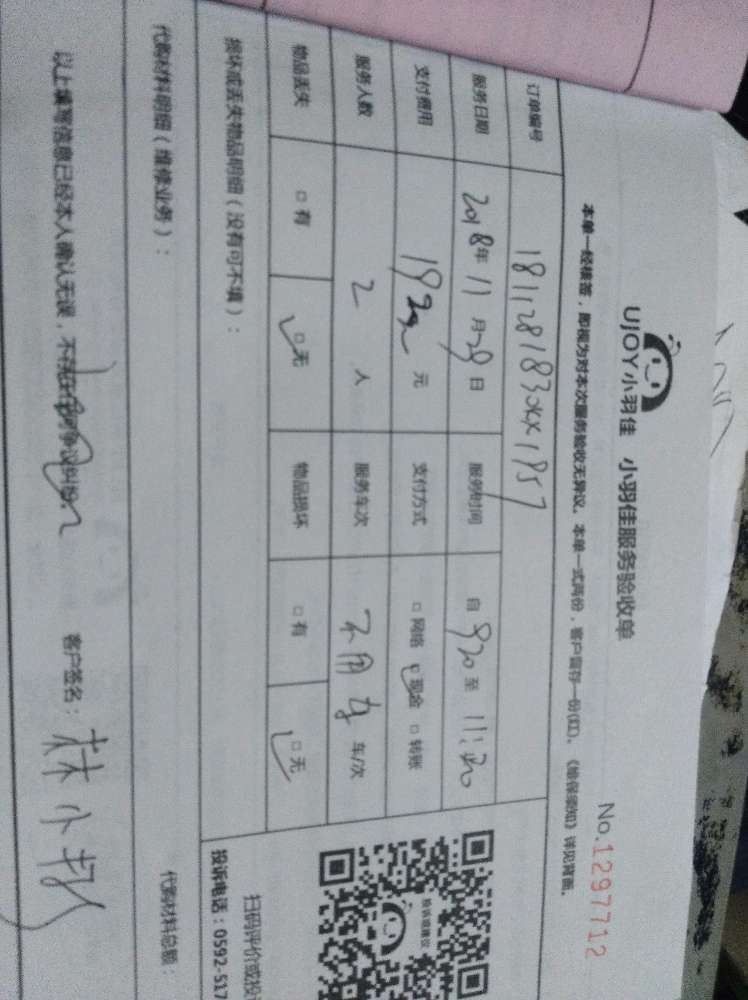 UJOY小羽佳 小羽佳服务验收单
No.1297712
本单一经核签，即视为对本次服务验收无异议。本单一式两份，客户留存一份(红)。《给保须知》详见背面。
订单编号 181128183xx1857
服务日期 2018年11月29日 服务时间 自920至11:20
支付费用 192元 支付方式 □网络 □现金 □转账
服务人数 2人 服务车次 不用车 车/次
物品丢失 □有 □无 物品损坏 □有 □无
损坏或丢失物品明细（没有可不填）：
扫码评价或投
投诉建议
投诉电话：0592-517
代购材料明细（维修业务）：
代购材料总额：
以上填写信息已经本人确认无误，不存在任何争议纠纷。 客户签名： 林小